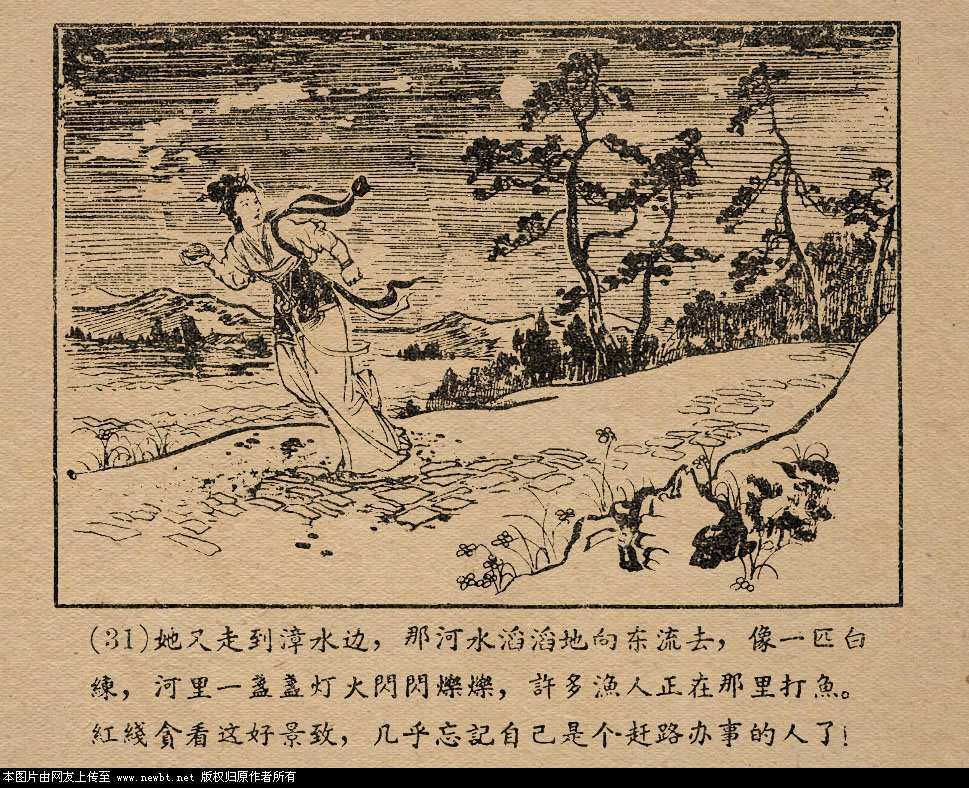 (31)她又走到漳水边，那河水滔滔地向东流去，像一匹白
練，河里一盏盏灯火閃閃爍爍，許多漁人正在那里打魚。
紅綫貪看这好景致，几乎忘記自己是个赶路办事的人了！
本图片由网友上传至 www.newbt.net 版权归原作者所有